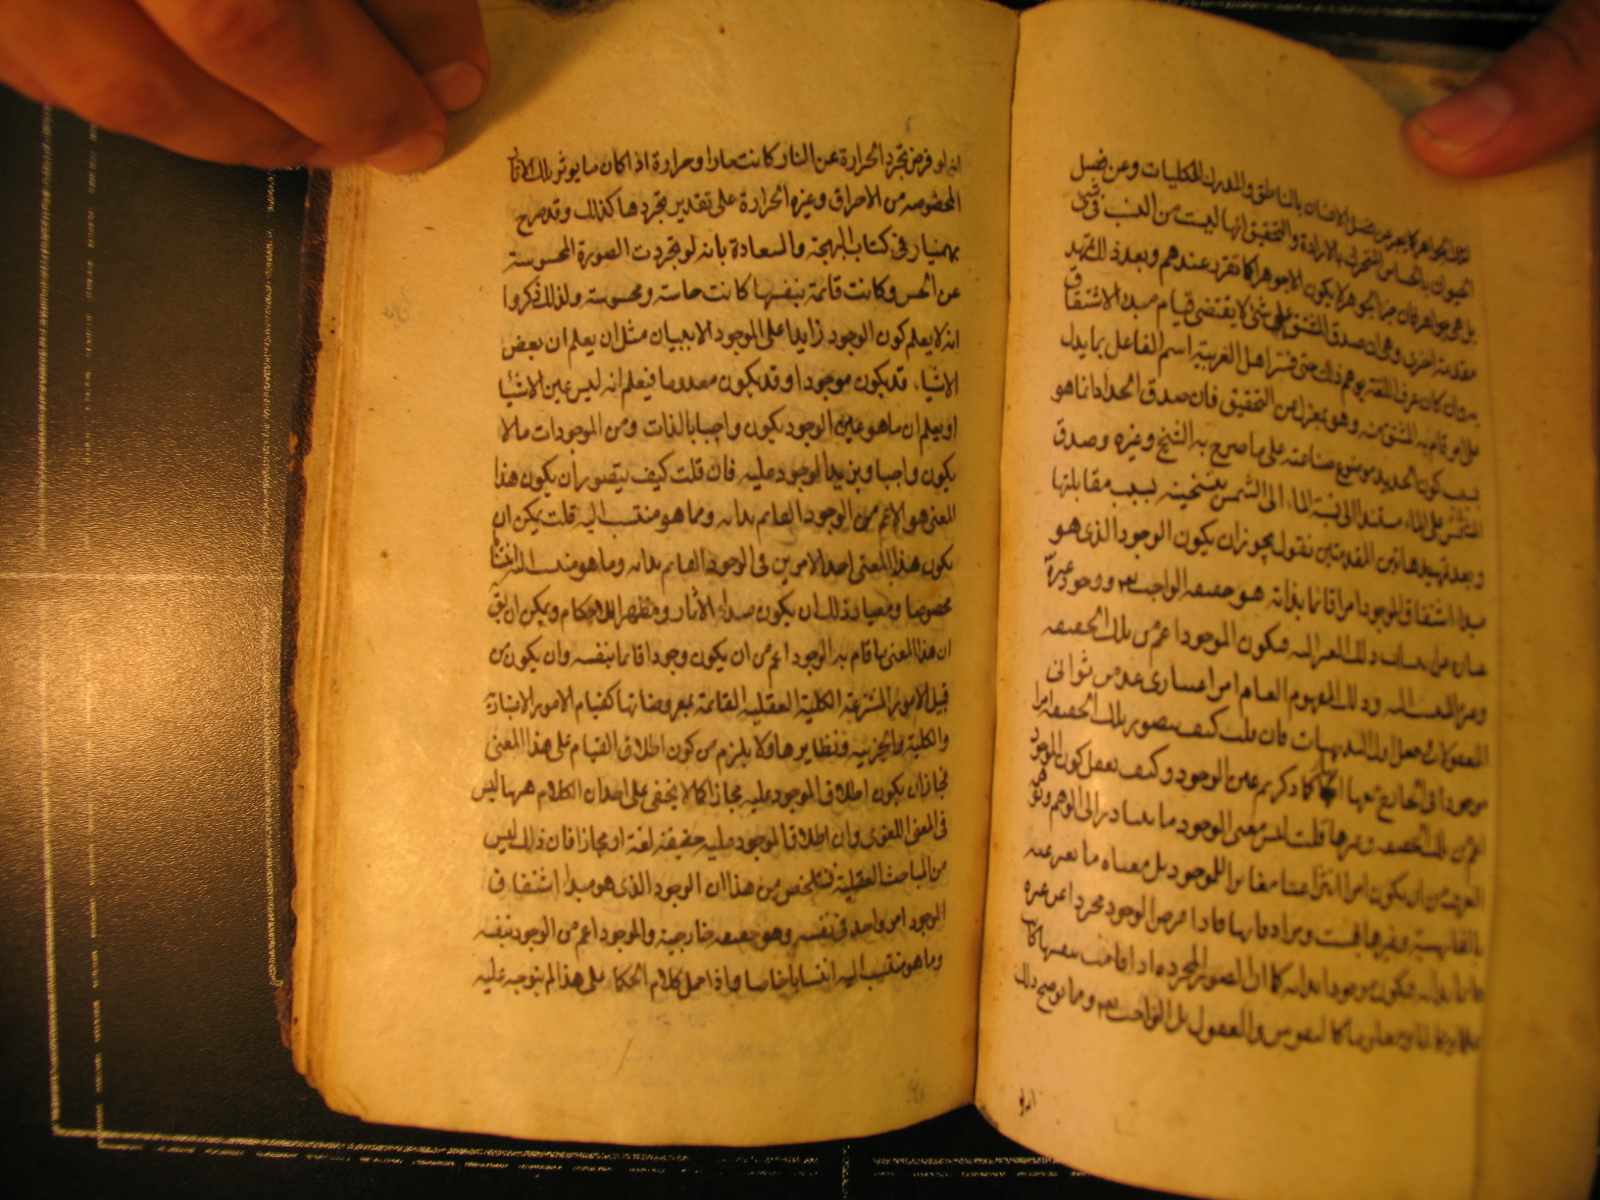 الجواهر كما يعبر عن فصل الانسان بالناطق والمدرك للكليات وعن فصل
الحيوان بالحساس المتحرك بالارادة والتحقيق انها ليست من النسب في شئ
بل هي جواهر فان جزء الجوهر لا يكون الا جوهرا كما تقرر عندهم وبعد ذلك نمهد
مقدمة اخرى وهي ان صدق المشتق على شئ لا يقتضي قيام مبدء الاشتقاق
به وان كان عرف اللغة يوهم ذلك حتى فسر اهل العربية اسم الفاعل بما يدل
على امر قام به المشتق منه وهو بمعزل عن التحقيق فان صدق الحداد انما هو
بسبب كون الحديد موضوع صناعته على ما صرح به الشيخ وغيره وصدق
المشمس على الماء مستند الى نسبة الماء الى الشمس بتسخينه بسبب مقابلتها
وبعد تمهيد هاتين المقدمتين نقول يجوز ان يكون الوجود الذي هو
مبدأ اشتقاق الموجود امرا قائما بذاته هو حقيقة الواجب تعـ ووجود غيره
عبارة عن انتساب ذلك الغير اليه فيكون الموجود اعم من تلك الحقيقة
ومن المنتسب اليه وذلك المفهوم العام امر اعتباري عد من ثواني
المعقولات وجعل اول البديهيات فان قلت كيف يتصور تلك الحقيقة امرا
موجودا في الخارج مع انها كما ذكرتم عين الوجود وكيف يعقل كون الموجود
اعم من تلك الحقيقة وغيرها قلت ليس معنى الوجود ما يتبادر الى الوهم
العرف من ان يكون امرا مغايرا للوجود بل معناه ما يعبر عنه
بالفارسية وغيرها بهست ومرادفاتها فاذا فرض الوجود مجردا عن غيره
قائما بذاته فيكون موجودا بذاته كما ان الصور المجردة اذا قامت بنفسها كانت
علما وعالما ومعلوما كالنفوس والعقول بل الواجب تعـ ومما يوضح ذلك
انه لو
انه لو فرض تجرد الحرارة عن النار كانت حارا وحرارة اذا كان ما يوثر تلك الاثار
المخصوصه من الاحراق وغيره الحرارة على تقدير تجردها كذلك وقد صرح
بهمنيار في كتاب البهجة والسعادة بانه لو تجردت الصورة المحسوسة
عن الحس وكانت قائمة بنفسها كانت حاسة ومحسوسة ولذلك ذكروا
انه لا يعلم كون الوجود زايدا على الموجود الا ببيان مثل ان يعلم ان بعض
الاشياء قد يكون موجودا وقد يكون معدوما فيعلم انه ليس عين الاشيا
او يعلم ان ما هو عين الوجود يكون واجبا بالذات ومن الموجودات ما لا
يكون واجبا ويزيد الوجود عليه فان قلت كيف يتصور ان يكون هذا
المعنى هو الاعم من الوجود القايم بذاته ومما هو منتسب اليه قلت يمكن ان
يكون هذا المعنى احد الامرين في الوجود القايم بذاته وما هو منتسب اليه انتسابا
مخصوصا ومعيار ذلك ان يكون مبدأ الاثار ومظهر الاحكام ويمكن ان يق
ان هذا المعنى ما قام به الوجود اعم من ان يكون وجودا قائما بنفسه وان يكون من
قبيل الامور المنتزعة الكلية العقلية القائمة بمعروضاتها كقيام الامور الاعتبارية
والكلية والجزيية ونظايرها ولا يلزم من كون اطلاق القيام على هذا المعنى
مجازا ان يكون اطلاق الموجود عليه مجازا كما لا يخفى على ان الكلام ههنا ليس
في المعنى اللغوي وان اطلاق الموجود عليه حقيقة لغة او مجازا فان ذلك ليس
من المباحث العقلية فتلخص من هذا ان الوجود الذي هو مبدأ اشتقاق
الموجود امر واحد في نفسه وهو حقيقة خارجية والموجود اعم من الوجود بنفسه
وما هو منتسب اليه انتسابا خاصا واذا حمل كلام الحكماء على هذا لم يتوجه عليه